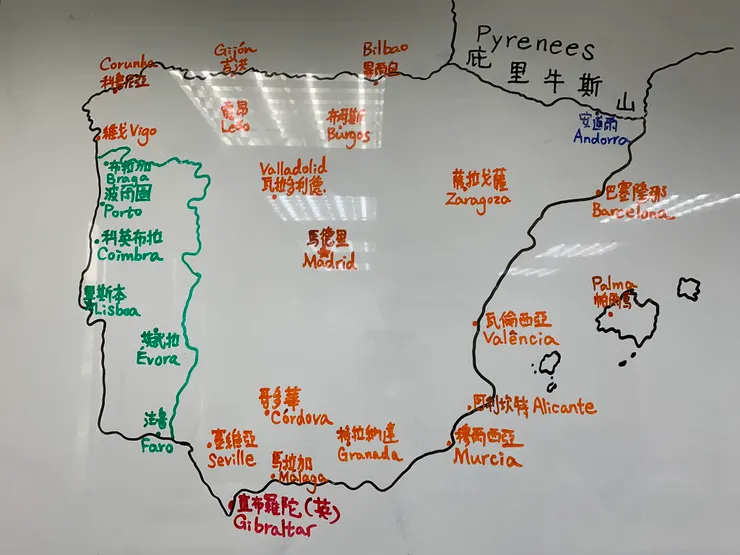 Pyrenees
庇里牛斯山
Corunha
Gijón
Bilbao
雷昂
León
布哥斯
Burgos
安道爾
Andorra
維戈 Vigo
布拉加
Braga
波爾圖
Porto
Valladolid
瓦拉多利德
薩拉戈薩
Zaragoza
巴塞隆那
Barcelona
科英布拉
Coimbra
馬德里
Madrid
里斯本
Lisboa
Palma
瓦倫西亞
València
埃武拉
Évora
哥多華
Córdova
阿利坎特 Alicante
法魯
Faro
塞維亞
Seville
馬拉加
Málaga
格拉納達
Granada
穆爾西亞
Murcia
直布羅陀(英)
Gibraltar